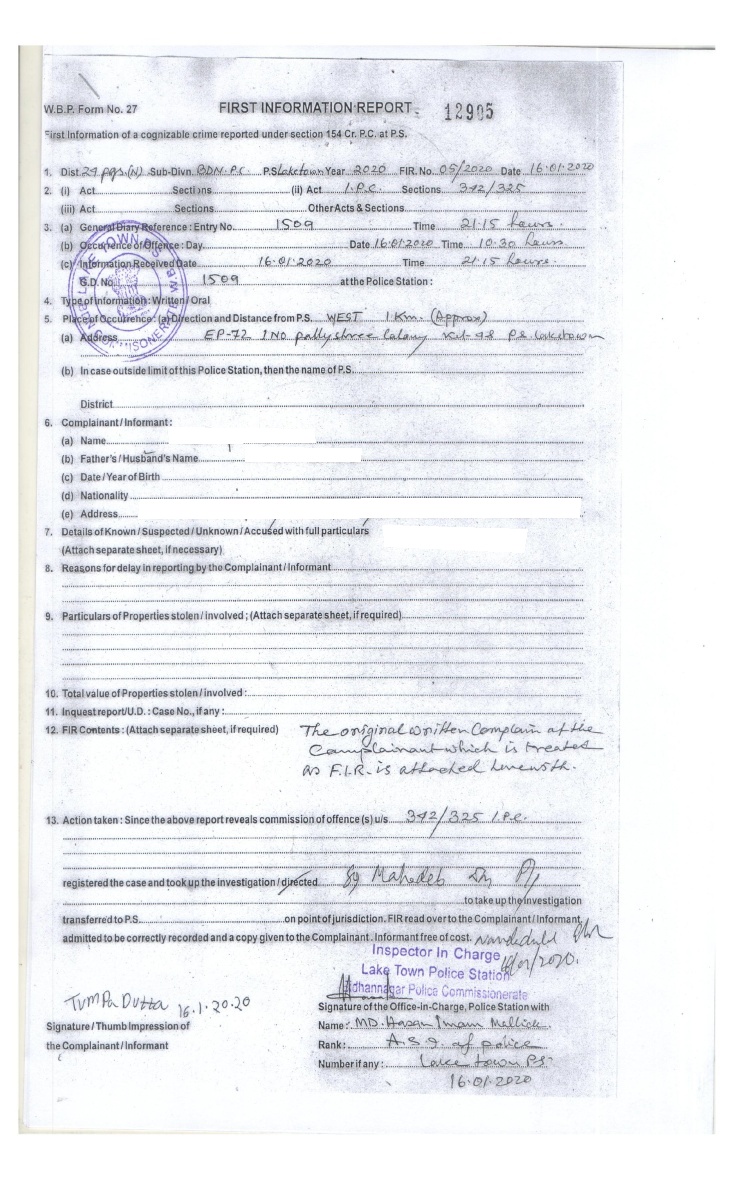 W.B.P. Form No. 27 FIRST INFORMATION REPORT 12905
First Information of a cognizable crime reported under section 154 Cr. P.C. at P.S.
1. Dist 24 pgs.(N) Sub-Divn. BDN. P.C. P.S Laketown Year 2020 FIR. No. 05/2020 Date 16.01.2020
2. (i) Act Sections (ii) Act I.P.C. Sections 342/325
(iii) Act Sections Other Acts & Sections
3. (a) General Diary Reference : Entry No. 1509 Time 21.15 hours.
(b) Occurrence of Offence : Day Date 16.01.2020 Time 10.30 hours
(c) Information Received Date 16.01.2020 Time 21.15 hours.
G.D. No. 1509 at the Police Station :
4. Type of information : Written / Oral
5. Place of Occurrence : (a) Direction and Distance from P.S. WEST 1 Km. (Approx)
(a) Address EP-72 1 No pally shree Colony Kol-48 P.S Laketown
(b) In case outside limit of this Police Station, then the name of P.S.
District
6. Complainant / Informant :
(a) Name
(b) Father's / Husband's Name
(c) Date / Year of Birth
(d) Nationality
(e) Address
7. Details of Known / Suspected / Unknown / Accused with full particulars
(Attach separate sheet, if necessary)
8. Reasons for delay in reporting by the Complainant / Informant
9. Particulars of Properties stolen / involved ; (Attach separate sheet, if required)
10. Total value of Properties stolen / involved :
11. Inquest report/U.D. : Case No., if any :
12. FIR Contents : (Attach separate sheet, if required) The original written Complain of the
Complainant which is treated
as F.I.R. is attached herewith.
13. Action taken : Since the above report reveals commission of offence (s) u/s 342/325 I.P.C.
registered the case and took up the investigation / directed Mahadeb
to take up the investigation
transferred to P.S. on point of jurisdiction. FIR read over to the Complainant / Informant,
admitted to be correctly recorded and a copy given to the Complainant. Informant free of cost.
Inspector In Charge
Lake Town Police Station
Bidhannagar Police Commissionerate
TUMPA DUTTA 16.1.2020
Signature of the Office-in-Charge, Police Station with
Signature / Thumb Impression of
the Complainant / Informant
Name : MD. Hasan Imam Mallick
Rank : A.S.I. of police
Number if any : Lake town P.S
16.01.2020